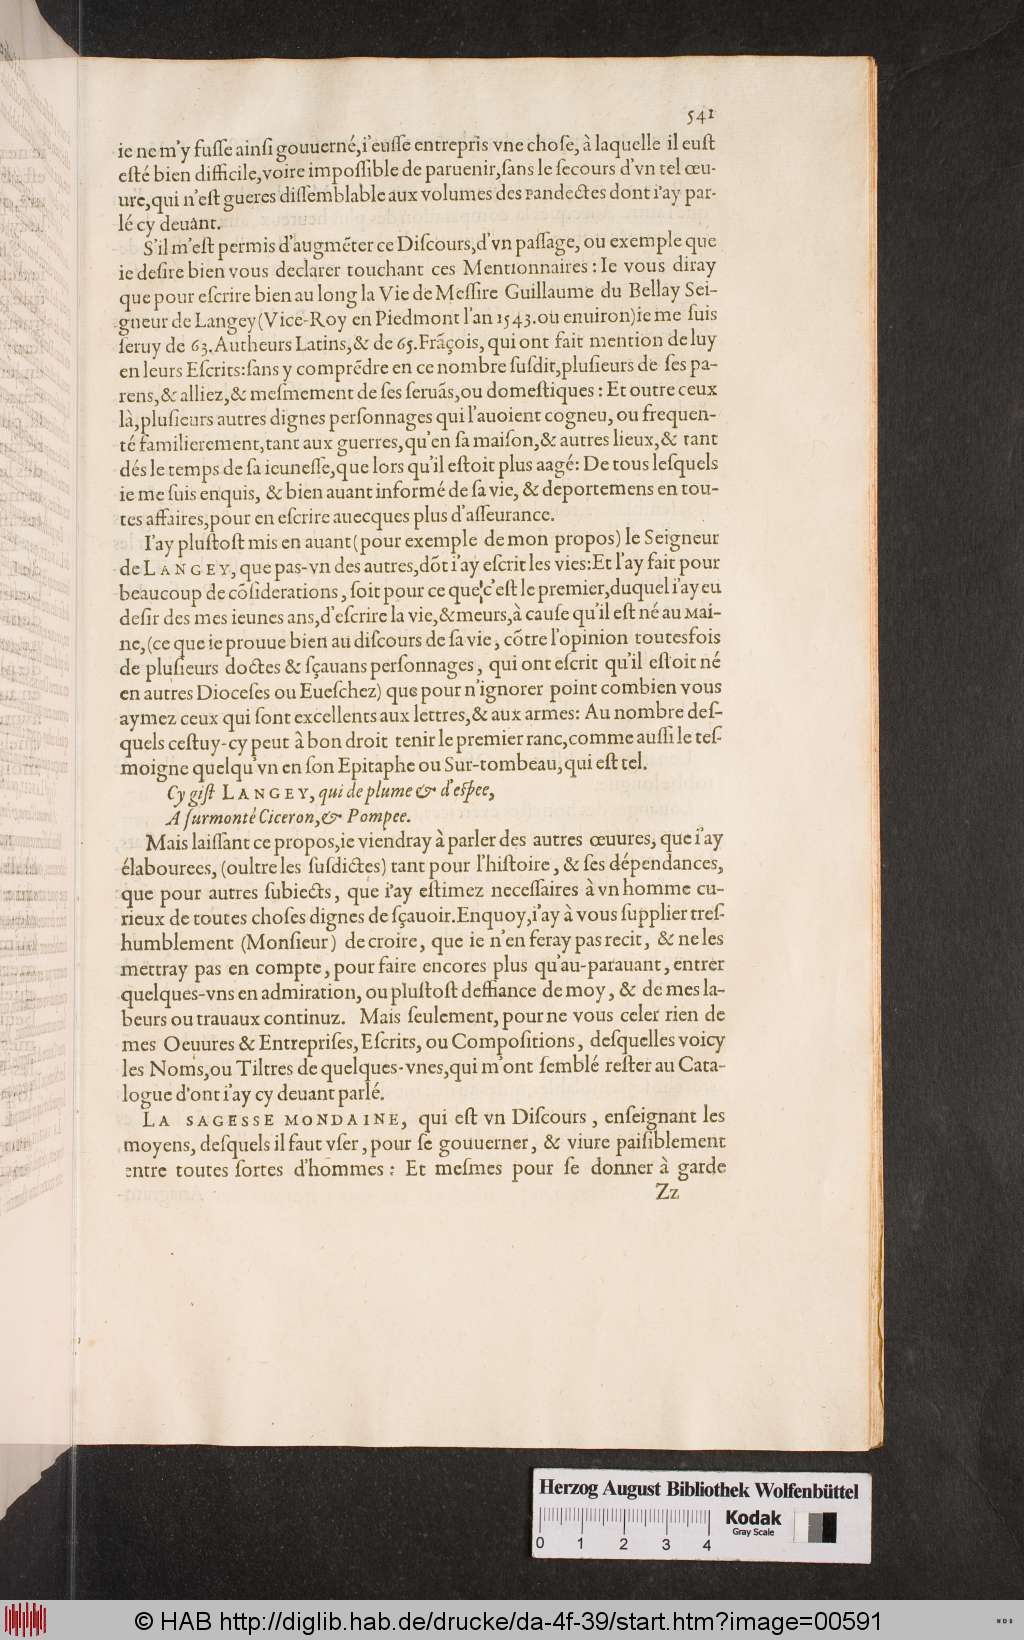 541
ie ne m'y fuſſe ainſi gouuerné, i'euſſe entrepris vne choſe, à laquelle il euſt
eſté bien difficile, voire impoſſible de paruenir, ſans le ſecours d'vn tel œu-
ure, qui n'eſt gueres diſſemblable aux volumes des Pandectes dont i'ay par-
lé cy deuant.
S'il m'eſt permis d'augmẽter ce Diſcours, d'vn paſſage, ou exemple que
ie deſire bien vous declarer touchant ces Mentionnaires : Ie vous diray
que pour eſcrire bien au long la Vie de Meſſire Guillaume du Bellay Sei-
gneur de Langey (Vice-Roy en Piedmont l'an 1543. ou enuiron) ie me ſuis
ſeruy de 63. Autheurs Latins, & de 65. Frãçois, qui ont fait mention de luy
en leurs Eſcrits: ſans y comprẽdre en ce nombre ſuſdit, pluſieurs de ſes pa-
rens, & alliez, & meſmement de ſes ſeruãs, ou domeſtiques : Et outre ceux
là, pluſieurs autres dignes perſonnages qui l'auoient cogneu, ou frequen-
té familierement, tant aux guerres, qu'en ſa maiſon, & autres lieux, & tant
dés le temps de ſa ieuneſſe, que lors qu'il eſtoit plus aagé: De tous leſquels
ie me ſuis enquis, & bien auant informé de ſa vie, & deportemens en tou-
tes affaires, pour en eſcrire auecques plus d'aſſeurance.
I'ay pluſtoſt mis en auant (pour exemple de mon propos) le Seigneur
de LANGEY, que pas-vn des autres, dõt i'ay eſcrit les vies: Et l'ay fait pour
beaucoup de cõſiderations, ſoit pour ce que c'eſt le premier, duquel i'ay eu
deſir des mes ieunes ans, d'eſcrire la vie, & meurs, à cauſe qu'il eſt né au Mai-
ne, (ce que ie prouue bien au diſcours de ſa vie, cõtre l'opinion toutesfois
de pluſieurs doctes & ſçauans perſonnages, qui ont eſcrit qu'il eſtoit né
en autres Dioceſes ou Eueſchez) que pour n'ignorer point combien vous
aymez ceux qui ſont excellents aux lettres, & aux armes: Au nombre deſ-
quels ceſtuy-cy peut à bon droit tenir le premier ranc, comme auſſi le teſ-
moigne quelqu'vn en ſon Epitaphe ou Sur-tombeau, qui eſt tel.
Cy giſt LANGEY, qui de plume & d'eſpee,
A ſurmonté Ciceron, & Pompee.
Mais laiſſant ce propos, ie viendray à parler des autres œuures, que i'ay
élabourees, (oultre les ſuſdictes) tant pour l'hiſtoire, & ſes dépendances,
que pour autres ſubiects, que i'ay eſtimez neceſſaires à vn homme cu-
rieux de toutes choſes dignes de ſçauoir. Enquoy, i'ay à vous ſupplier treſ-
humblement (Monſieur) de croire, que ie n'en feray pas recit, & ne les
mettray pas en compte, pour faire encores plus qu'au-parauant, entrer
quelques-vns en admiration, ou pluſtoſt deffiance de moy, & de mes la-
beurs ou trauaux continuz. Mais ſeulement, pour ne vous celer rien de
mes Oeuures & Entrepriſes, Eſcrits, ou Compoſitions, deſquelles voicy
les Noms, ou Tiltres de quelques-vnes, qui m'ont ſemblé reſter au Cata-
logue d'ont i'ay cy deuant parlé.
LA SAGESSE MONDAINE, qui eſt vn Diſcours, enſeignant les
moyens, deſquels il faut vſer, pour ſe gouuerner, & viure paiſiblement
entre toutes ſortes d'hommes : Et meſmes pour ſe donner à garde
Zz
Herzog August Bibliothek Wolfenbüttel
0 1 2 3 4
Kodak
Gray Scale
© HAB http://diglib.hab.de/drucke/da-4f-39/start.htm?image=00591